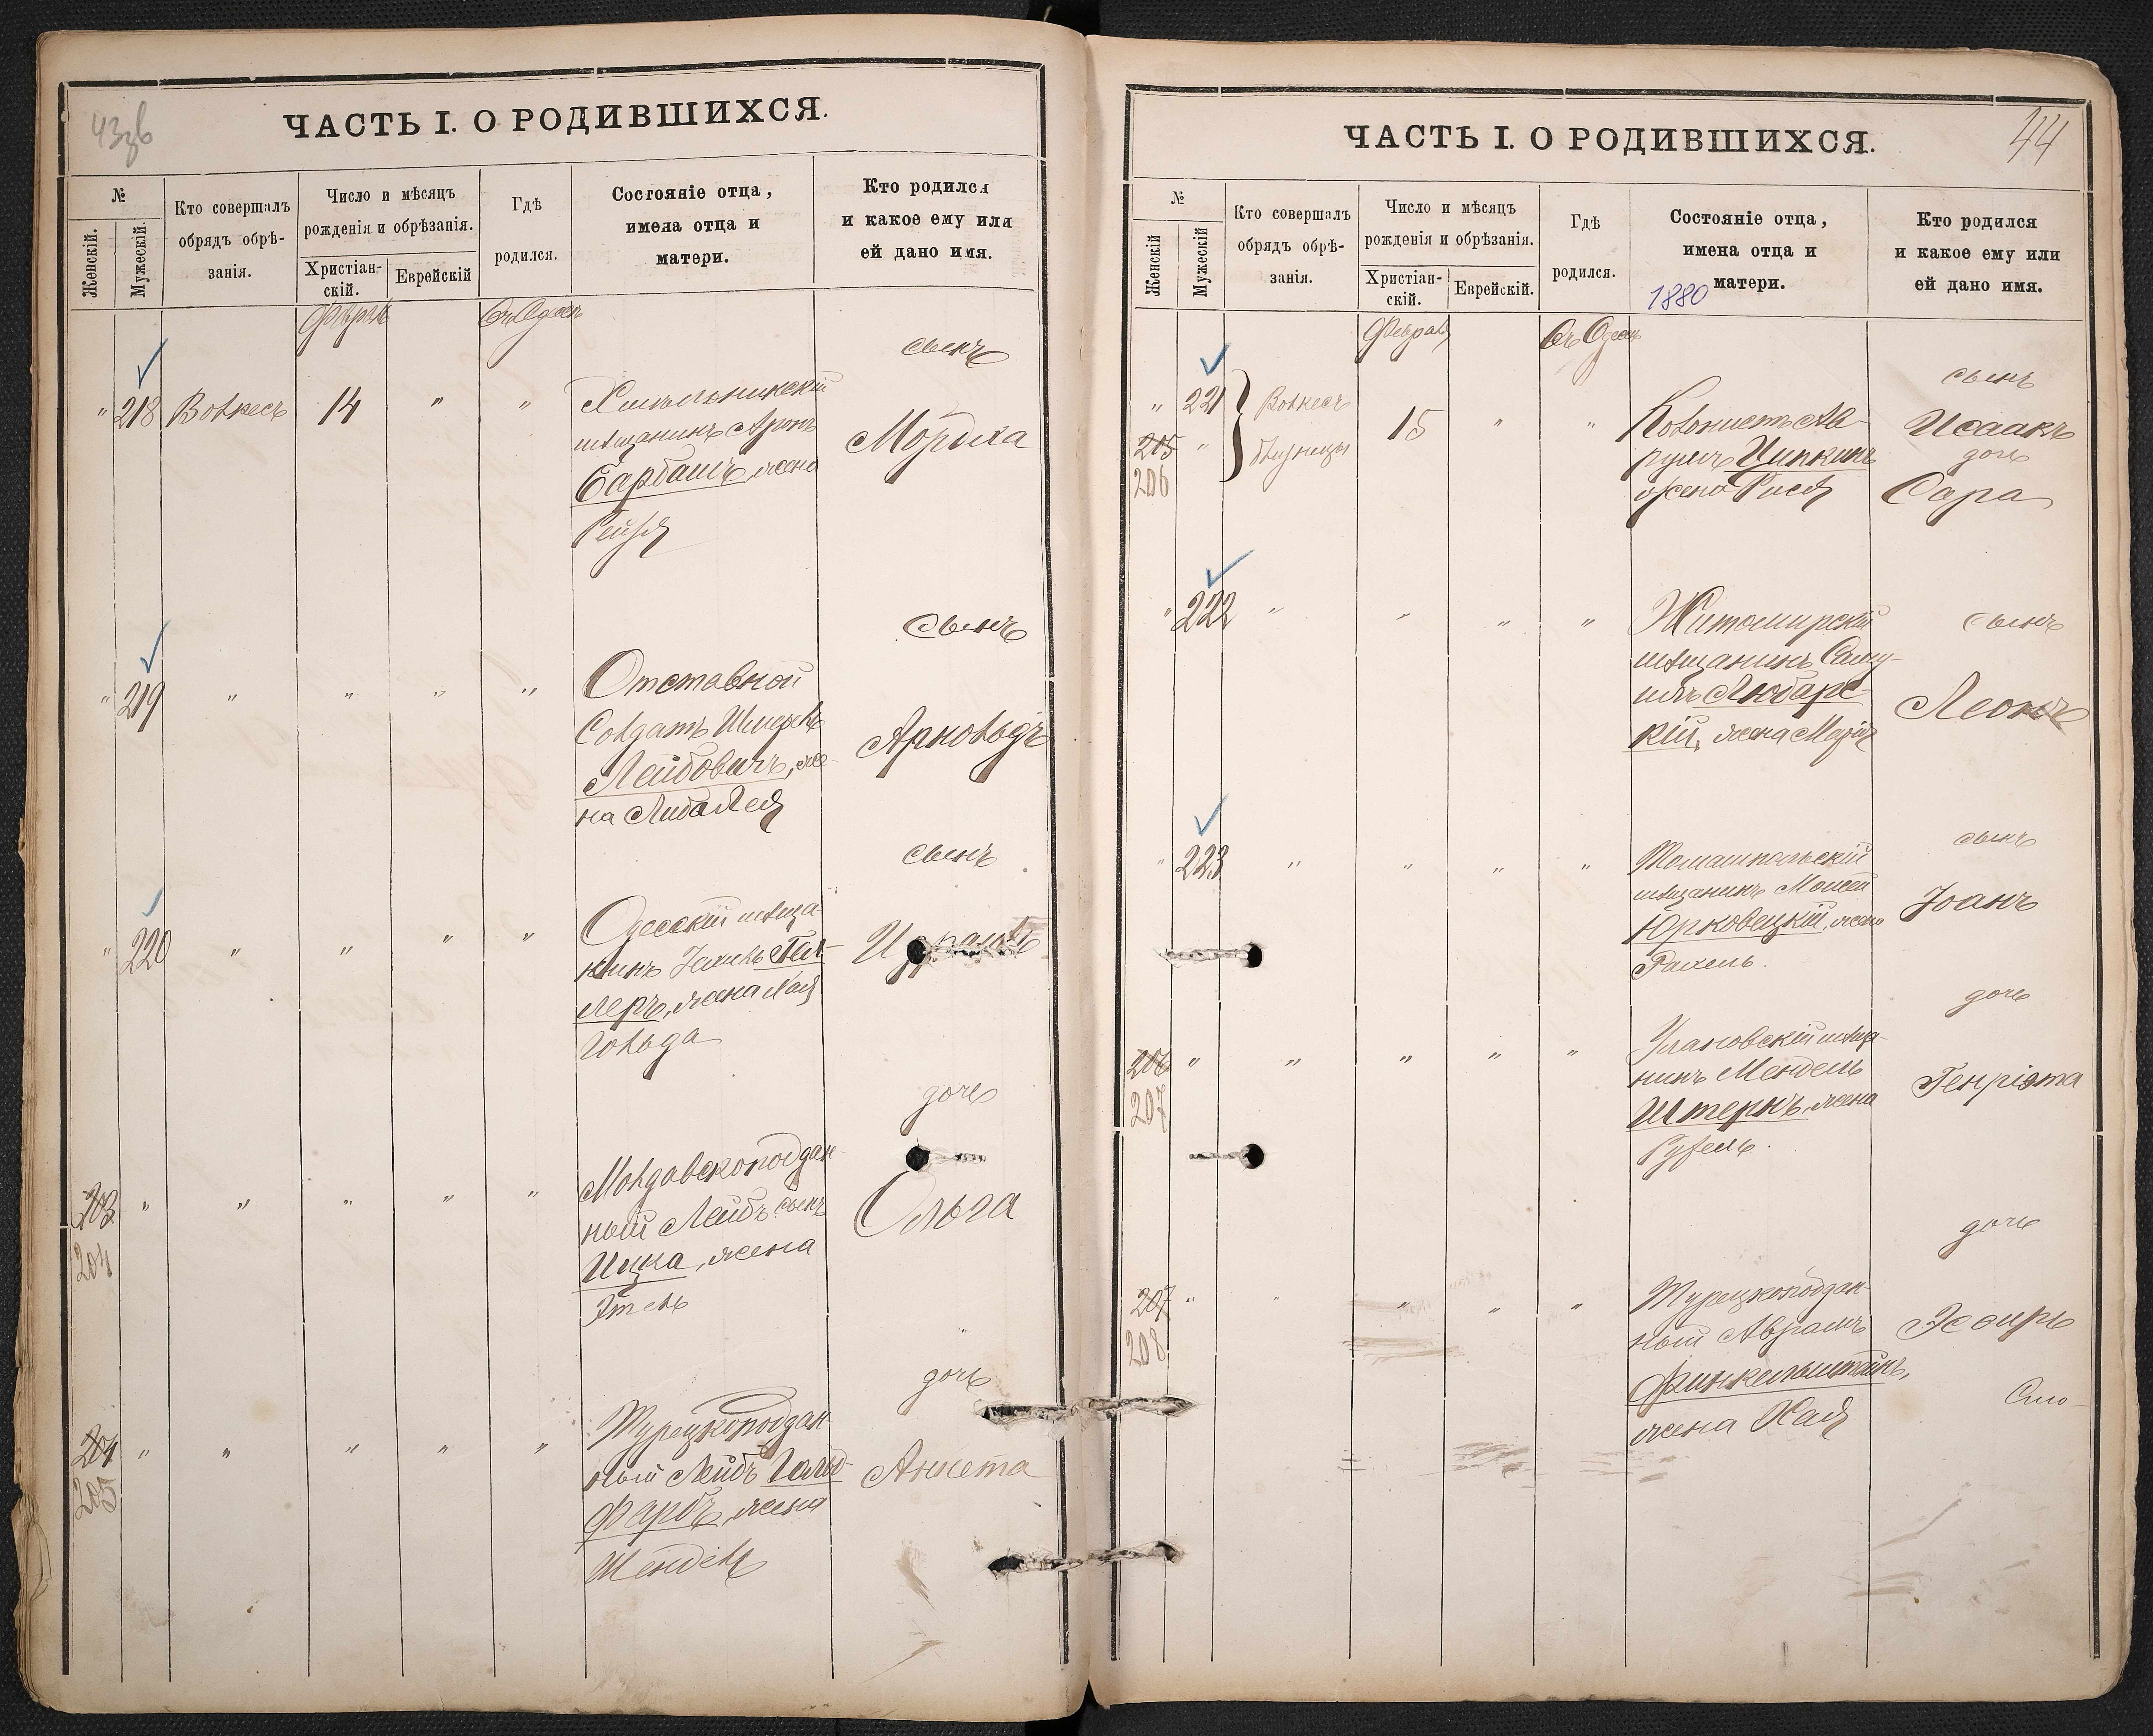 43зв
ЧАСТЬ I. О РОДИВШИХСЯ.
№
Женскій.
Мужескій.
Кто совершалъ
обрядъ обрѣ-
занія.
Число и мѣсяцъ
рожденія и обрѣзанія.
Христіан-
скій.
Еврейскій
Гдѣ
родился.
Состояніе отца,
имена отца и
матери.
Кто родился
и какое ему или
ей дано имя.
Февраль
Въ Одессѣ
сынъ
" 218 Волкесъ 14 " "
Хмѣльникскій
мѣщанинъ Аронъ
Барбашъ, жена
Рейзя
Мордха
сынъ
" 219 " " " "
Отставной
Солдатъ Шмерель
Лейбовичъ, же-
на Либа Лея
Арнольдъ
сынъ
" 220 " " " "
Одесскій мѣща-
нинъ
леръ, жена Хая
Гольда
дочь
203 " " " " "
204
Молдавскоподдан-
ный Лейбъ сынъ
Ицка, жена
Этель
Ольга
дочь
204 " " " " "
205
Турецкоподдан-
ный Лейбъ Гольд-
фарбъ, жена
Шендель
Аннета
44
ЧАСТЬ I. О РОДИВШИХСЯ.
№
Женскій
Мужескій
Кто совершалъ
обрядъ обрѣ-
занія.
Число и мѣсяцъ
рожденія и обрѣзанія.
Христіан-
скій.
Еврейскій.
Гдѣ
родился.
Состояніе отца,
имена отца и
матери.
1880
Кто родился
и какое ему или
ей дано имя.
Февраль
Въ Одессѣ
" 221 Волкесъ 15 " "
205 " близнецы
206
Колонистъ Ав-
румъ Ципкинъ
жена Рися
сынъ
Исаакъ
дочь
Сара
" 222 " " " "
Житомирскій
мѣщанинъ Саму-
илъ Любарс-
кій, жена Марія
сынъ
Леонъ
" 223 " " " "
Томашпольскій
мѣщанинъ Моисей
Юрковецкій, жена
Рахель.
сынъ
Іоанъ
206 " " " " "
207
Улановскій мѣща-
нинъ Мендель
Штернъ, жена
Рухель.
дочь
Генріэта
207 " " " " "
208
Турецкоподдан-
ный Аврамъ
Финкельштейнъ,
жена Хая
дочь
Эсѳирь